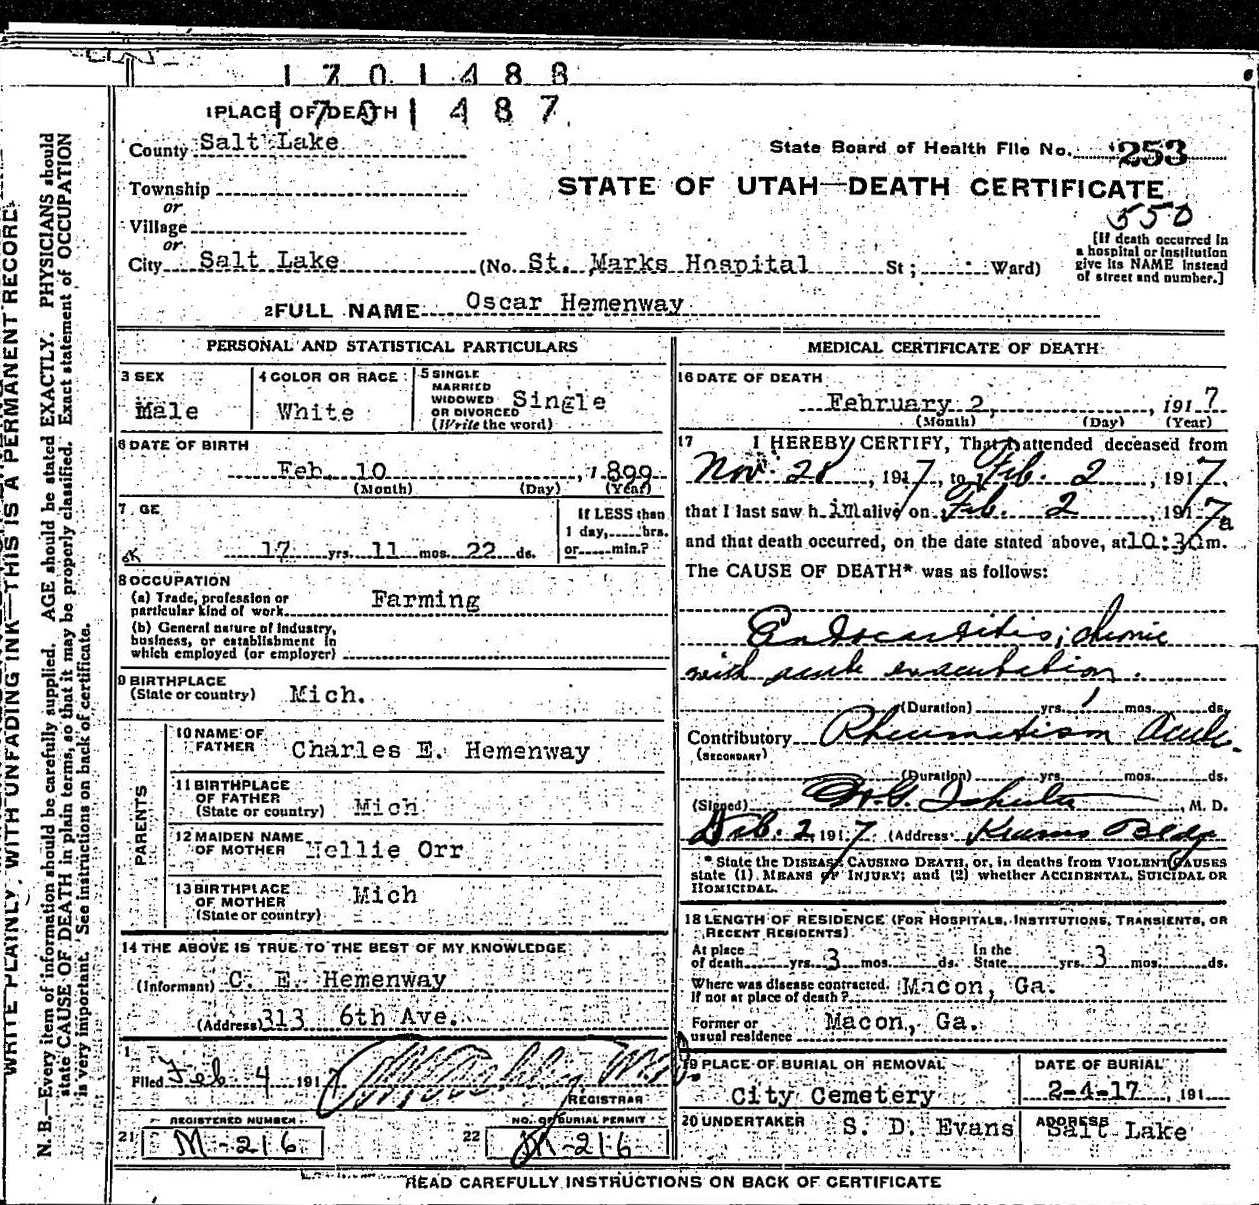 1701488
1 PLACE OF DEATH 1701487
County Salt Lake
State Board of Health File No. 253
Township
STATE OF UTAH—DEATH CERTIFICATE
or
550
Village
or
City Salt Lake (No. St. Marks Hospital St; Ward)
[If death occurred in
a hospital or institution
give its NAME instead
of street and number.]
2 FULL NAME Oscar Hemenway
PERSONAL AND STATISTICAL PARTICULARS
3 SEX
Male
4 COLOR OR RACE
White
5 SINGLE
MARRIED
WIDOWED
OR DIVORCED
(Write the word)
Single
6 DATE OF BIRTH
Feb. 10, 1899
(Month) (Day) (Year)
7 GE
17 yrs. 11 mos. 22 ds.
If LESS than
1 day, hrs.
or min.?
8 OCCUPATION
(a) Trade, profession or
particular kind of work Farming
(b) General nature of industry,
business, or establishment in
which employed (or employer)
9 BIRTHPLACE
(State or country) Mich.
PARENTS
10 NAME OF
FATHER Charles E. Hemenway
11 BIRTHPLACE
OF FATHER
(State or country) Mich
12 MAIDEN NAME
OF MOTHER Nellie Orr
13 BIRTHPLACE
OF MOTHER
(State or country) Mich
14 THE ABOVE IS TRUE TO THE BEST OF MY KNOWLEDGE
(Informant) C. E. Hemenway
(Address) 313 6th Ave.
Filed Feb 4 1917
REGISTRAR
REGISTERED NUMBER
21 M-216
NO. OF BURIAL PERMIT
22 M-216
MEDICAL CERTIFICATE OF DEATH
16 DATE OF DEATH
February 2, 1917
(Month) (Day) (Year)
17 I HEREBY CERTIFY, That I attended deceased from
Nov. 28, 1917, to Feb. 2, 1917.
that I last saw h im alive on Feb. 2, 1917
and that death occurred, on the date stated above, at 10:30 a m.
The CAUSE OF DEATH* was as follows:
Endocarditis; chronic
with acute
(Duration) yrs. mos. ds.
Contributory Rheumatism Acute.
(SECONDARY)
(Duration) yrs. mos. ds.
(Signed) M. D.
Feb. 2 1917 (Address) Kearns Bldg
* State the DISEASE CAUSING DEATH, or, in deaths from VIOLENT CAUSES
state (1) MEANS OF INJURY; and (2) whether ACCIDENTAL, SUICIDAL OR
HOMICIDAL.
18 LENGTH OF RESIDENCE (FOR HOSPITALS, INSTITUTIONS, TRANSIENTS, OR
RECENT RESIDENTS)
At place
of death yrs. 3 mos. ds.
In the
State yrs. 3 mos. ds.
Where was disease contracted,
If not at place of death? Macon, Ga.
Former or
usual residence Macon, Ga.
19 PLACE OF BURIAL OR REMOVAL
City Cemetery
DATE OF BURIAL
2-4-17, 191
20 UNDERTAKER S. D. Evans
ADDRESS
Salt Lake
READ CAREFULLY INSTRUCTIONS ON BACK OF CERTIFICATE
WRITE PLAINLY, WITH UNFADING INK—THIS IS A PERMANENT RECORD
N. B.—Every item of information should be carefully supplied. AGE should be stated EXACTLY. PHYSICIANS should
state CAUSE OF DEATH in plain terms, so that it may be properly classified. Exact statement of OCCUPATION
is very important. See instructions on back of certificate.